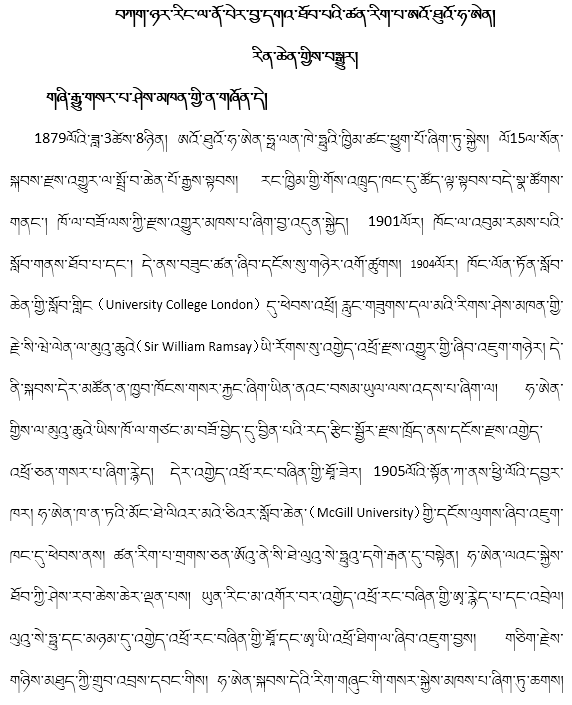 བཀག་ཉར་རིང་ལ་ནོ་པེར་བྱ་དགའ་ཐོབ་པའི་ཚན་རིག་པ་ཨའོ་ཐུའོ་ཧ་ཨེན།
རིན་ཆེན་གྱིས་བསྒྱུར།
གཞི་རྒྱུ་གསར་པ་ཤེས་མཁན་གྱི་ན་གཞོན་དེ།
1879ལོའི་ཟླ་3ཚེས་8ཉིན། ཨའོ་ཐུའོ་ཧ་ཨེན་ཧྥ་ལན་ཁེ་ཧྥུའི་ཁྱིམ་ཚང་ཕྱུག་པོ་ཞིག་ཏུ་སྐྱེས། ལོ15ལ་སོན་
སྐབས་རྫས་འགྱུར་ལ་སྤྲོ་བ་ཆེན་པོ་རྒྱས་སྟབས། རང་ཁྱིམ་གྱི་གོས་འཁྲུད་ཁང་དུ་ཚོད་ལྟ་སྟབས་བདེ་སྣ་ཚོགས་
གནང་། ཁོ་ལ་བཟོ་ལས་ཀྱི་རྫས་འགྱུར་མཁས་པ་ཞིག་བྱ་འདུན་སྐྱེད། 1901ལོར། ཁོང་ལ་འབུམ་རམས་པའི་
སློབ་གནས་ཐོབ་པ་དང་། དེ་ནས་བཟུང་ཚན་ཞིབ་དངོས་སུ་གཉེར་འགོ་ཚུགས། 1904ལོར། ཁོང་ལོན་ཏོན་སློབ་
ཆེན་གྱི་སློབ་གླིང་（University College London）དུ་ཕེབས་འཕྲོ། རླུང་གཟུགས་དལ་མའི་རིགས་ཤེས་མཁན་གྱི་
རྗེ་སི་ཝེ་ལེན་ལ་མུའུ་ཆུའེ（Sir William Ramsay）ཡི་རོགས་སུ་འགྱེད་འཕྲོ་རྫས་འགྱུར་གྱི་ཞིབ་འཇུག་གཉེར། དེ་
ནི་སྐབས་དེར་མཚོན་ན་ཁྱབ་ཁོངས་གསར་རྐྱང་ཞིག་ཡིན་ནའང་བསམ་ཡུལ་ལས་འདས་པ་ཞིག་ལ། ཧ་ཨེན་
གྱིས་ལ་མུའུ་ཆུའེ་ཡིས་ཁོ་ལ་གཙང་མ་བཟོ་བྱེད་དུ་བྱིན་པའི་རད་རྩིང་སྦྱོར་རྫས་ཁྲོད་ནས་དངོས་རྫས་འགྱེད་
འཕྲོ་ཅན་གསར་པ་ཞིག་རྙེད། དེར་འགྱེད་འཕྲོ་རང་བཞིན་གྱི་ཐོ་ཟེར། 1905ལོའི་སྟོན་ཀ་ནས་ཕྱི་ལོའི་དབྱར་
ཁར། ཧ་ཨེན་ཁ་ན་ཏའི་མོང་ཐེ་ལིའར་མའེ་ཅིའར་སློབ་ཆེན་（McGill University）གྱི་དངོས་ལུགས་ཞིབ་འཇུག་
ཁང་དུ་ཕེབས་ནས། ཚན་རིག་པ་གྲགས་ཅན་ཨོའུ་ནེ་སི་ཐེ་ལུའུ་སེ་ཧྥུའུ་དགེ་རྒན་དུ་བསྟེན། ཧ་ཨེན་ལའང་སྐྱེས་
ཐོབ་ཀྱི་ཤེས་རབ་ཆེས་ཆེར་ལྡན་པས། ཡུན་རིང་མ་འགོར་བར་འགྱེད་འཕྲོ་རང་བཞིན་གྱི་ཨ་རྙེད་པ་དང་འབྲེལ།
ལུའུ་སེ་ཧྥུ་དང་མཉམ་དུ་འགྱེད་འཕྲོ་རང་བཞིན་གྱི་ཐོ་དང་ཨ་ཡི་འཕྲོ་ཐིག་ལ་ཞིབ་འཇུག་བྱས། གཅིག་རྗེས་
གཉིས་མཐུད་ཀྱི་གྲུབ་འབྲས་དབང་གིས། ཧ་ཨེན་སྐབས་དེའི་རིག་གཞུང་གི་གསར་སྐྱེས་མཁས་པ་ཞིག་ཏུ་ཆགས།